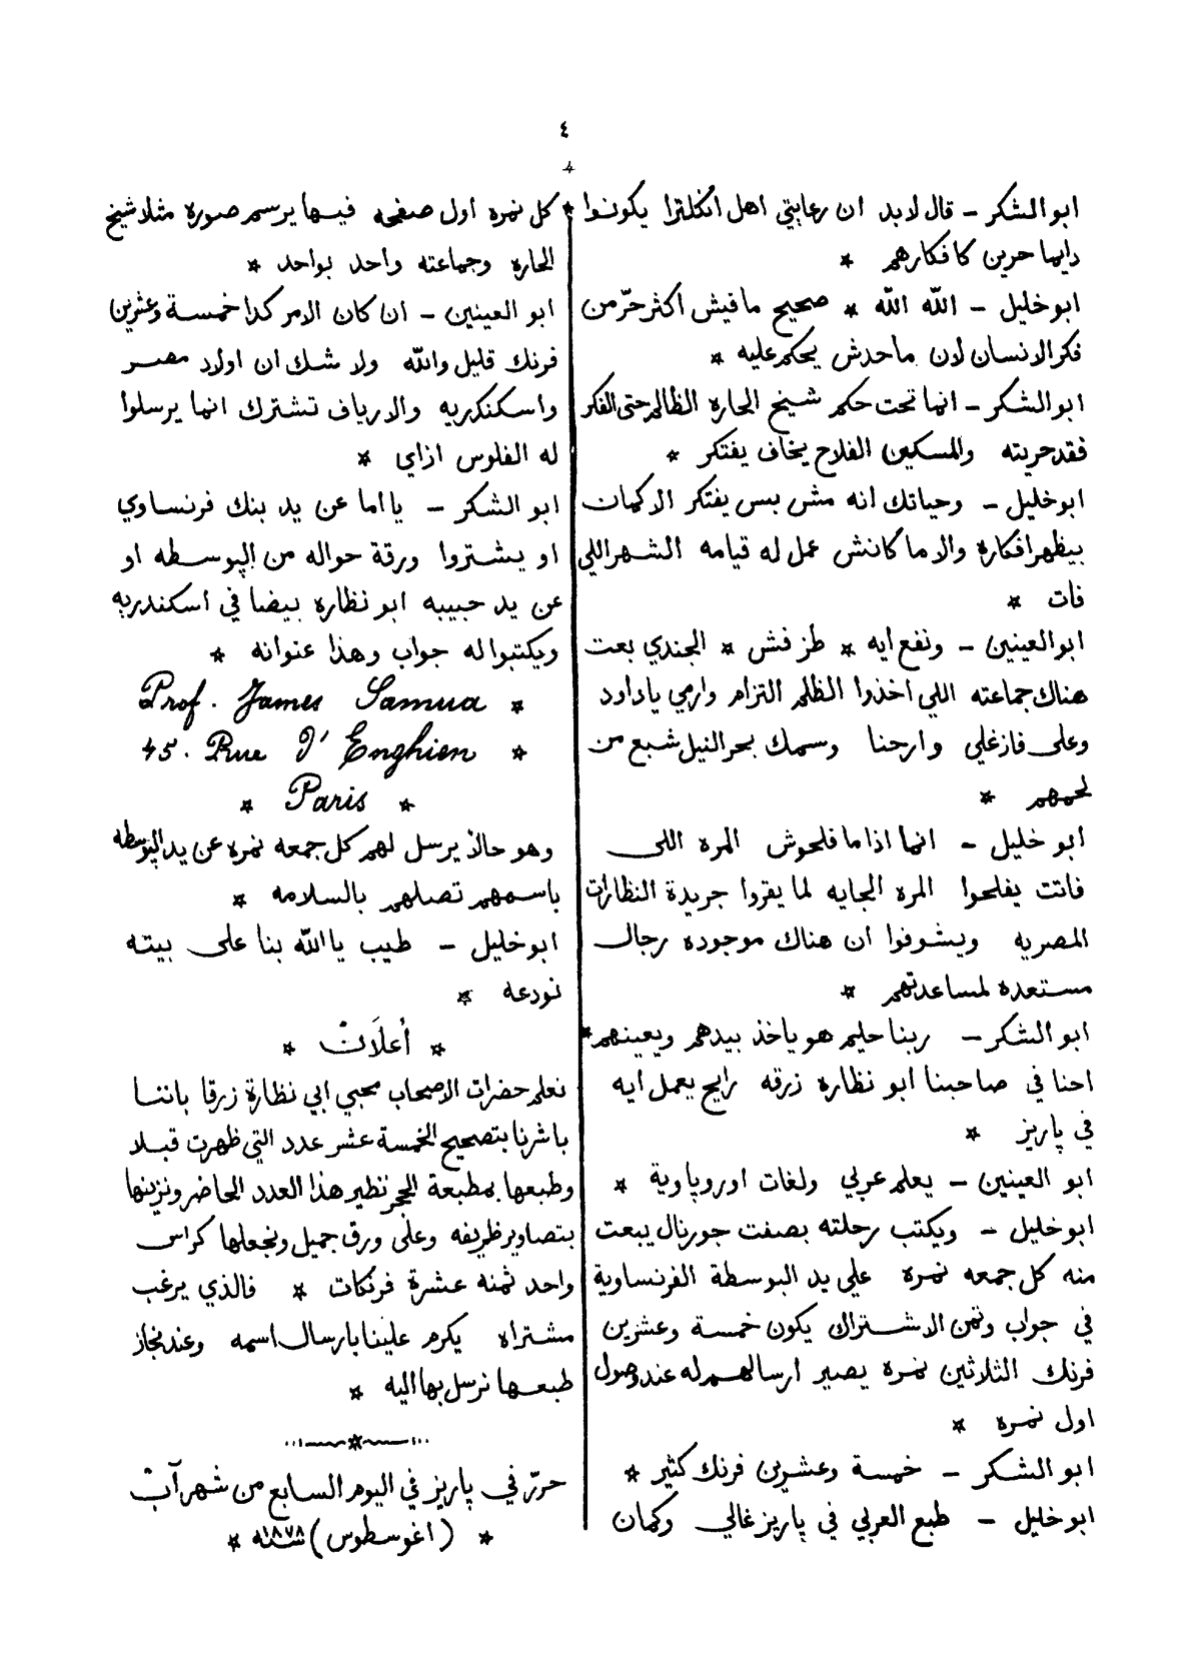 ٤
ابو الشكر – قال لابد ان رعايتي اهل انكلترا يكونوا
دايما حرين كافكارهم *
ابو خليل – الله الله * صحيح مافيش اكثر حرّ من
فكر الانسان لان ماحدش يحكم عليه *
ابو الشكر – انما تحت حكم شيخ الحاره الظالم حتى الفكر
فقد حريته والمسكين الفلاح يخاف يفتكر *
ابو خليل – وحياتك انه مش بس يفتكر الا كمان
بيظهر افكاره والا ما كانش عمل له قيامه الشهر اللي
فات *
ابو العينين – ونفع ايه * طز فش * الجندي بعت
هناك جماعته اللي اخذوا الظلم التزام وارمي ياداود
وعلى فازغلي وارجنا وسمك بحر النيل شبع من
لحمهم *
ابو خليل – انما اذا ما فلحوش المره اللى
فاتت يفلحوا المره الجايه لما يقروا جريدة النظارات
المصريه ويشوفوا ان هناك موجوده رجال
مستعده لمساعدتهم *
ابو الشكر – ربنا حليم هو ياخذ بيدهم ويعينهم *
احنا في صاحبنا ابو نظاره زرقه رايح يعمل ايه
في پاريز *
ابو العينين – يعلم عربي ولغات اوروپاوية *
ابو خليل – ويكتب رحلته بصفت جورنال يبعت
منه كل جمعه نمره على يد البوسطة الفرنساوية
في جواب وثمن الاشتراك يكون خمسة وعشرين
فرنك الثلاثين نمره يصير ارسالهم له عند وصول
اول نمره *
ابو الشكر – خمسة وعشرين فرنك كثير *
ابو خليل – طبع العربي في پاريز غالي وكمان
* كل نمره اول صفحه فيها يرسم صوره مثلا شيخ
الحاره وجماعته واحد بواحد *
ابو العينين – ان كان الامر كدا خمسة وعشرين
فرنك قليل والله ولا شك ان اولاد مصر
واسكندريه والارياف تشترك انما يرسلوا
له الفلوس ازاي *
ابو الشكر – يا اما عن يد بنك فرنساوي
او يشتروا ورقة حواله من الپوسطه او
عن يد حبيبه ابو نظاره بيضا في اسكندريه
ويكتبوا له جواب وهذا عنوانه *
Prof. James Sanua *
45. Rue d'Enghien *
* Paris *
وهو حالا يرسل لهم كل جمعه نمره عن يد الپوسطه
باسمهم تصلهم بالسلامه *
ابو خليل – طيب يا الله بنا على بيته
نودعه *
* أعلان *
نعلم حضرات الاصحاب محبي ابي نظارة زرقا باننا
باشرنا بتصحيح الخمسة عشر عدد التي ظهرت قبلا
وطبعها بمطبعة الحجر نظير هذا العدد الحاضر ونزينها
بتصاوير ظريفه وعلى ورق جميل ونجعلها كراس
واحد ثمنه عشرة فرنكات * فالذي يرغب
مشتراه يكرم علينا بارسال اسمه وعند نجاز
طبعها نرسل بها اليه *
حرّر في پاريز في اليوم السابع من شهر آب
* (اغوسطوس) سنة ١٨٧٨ *